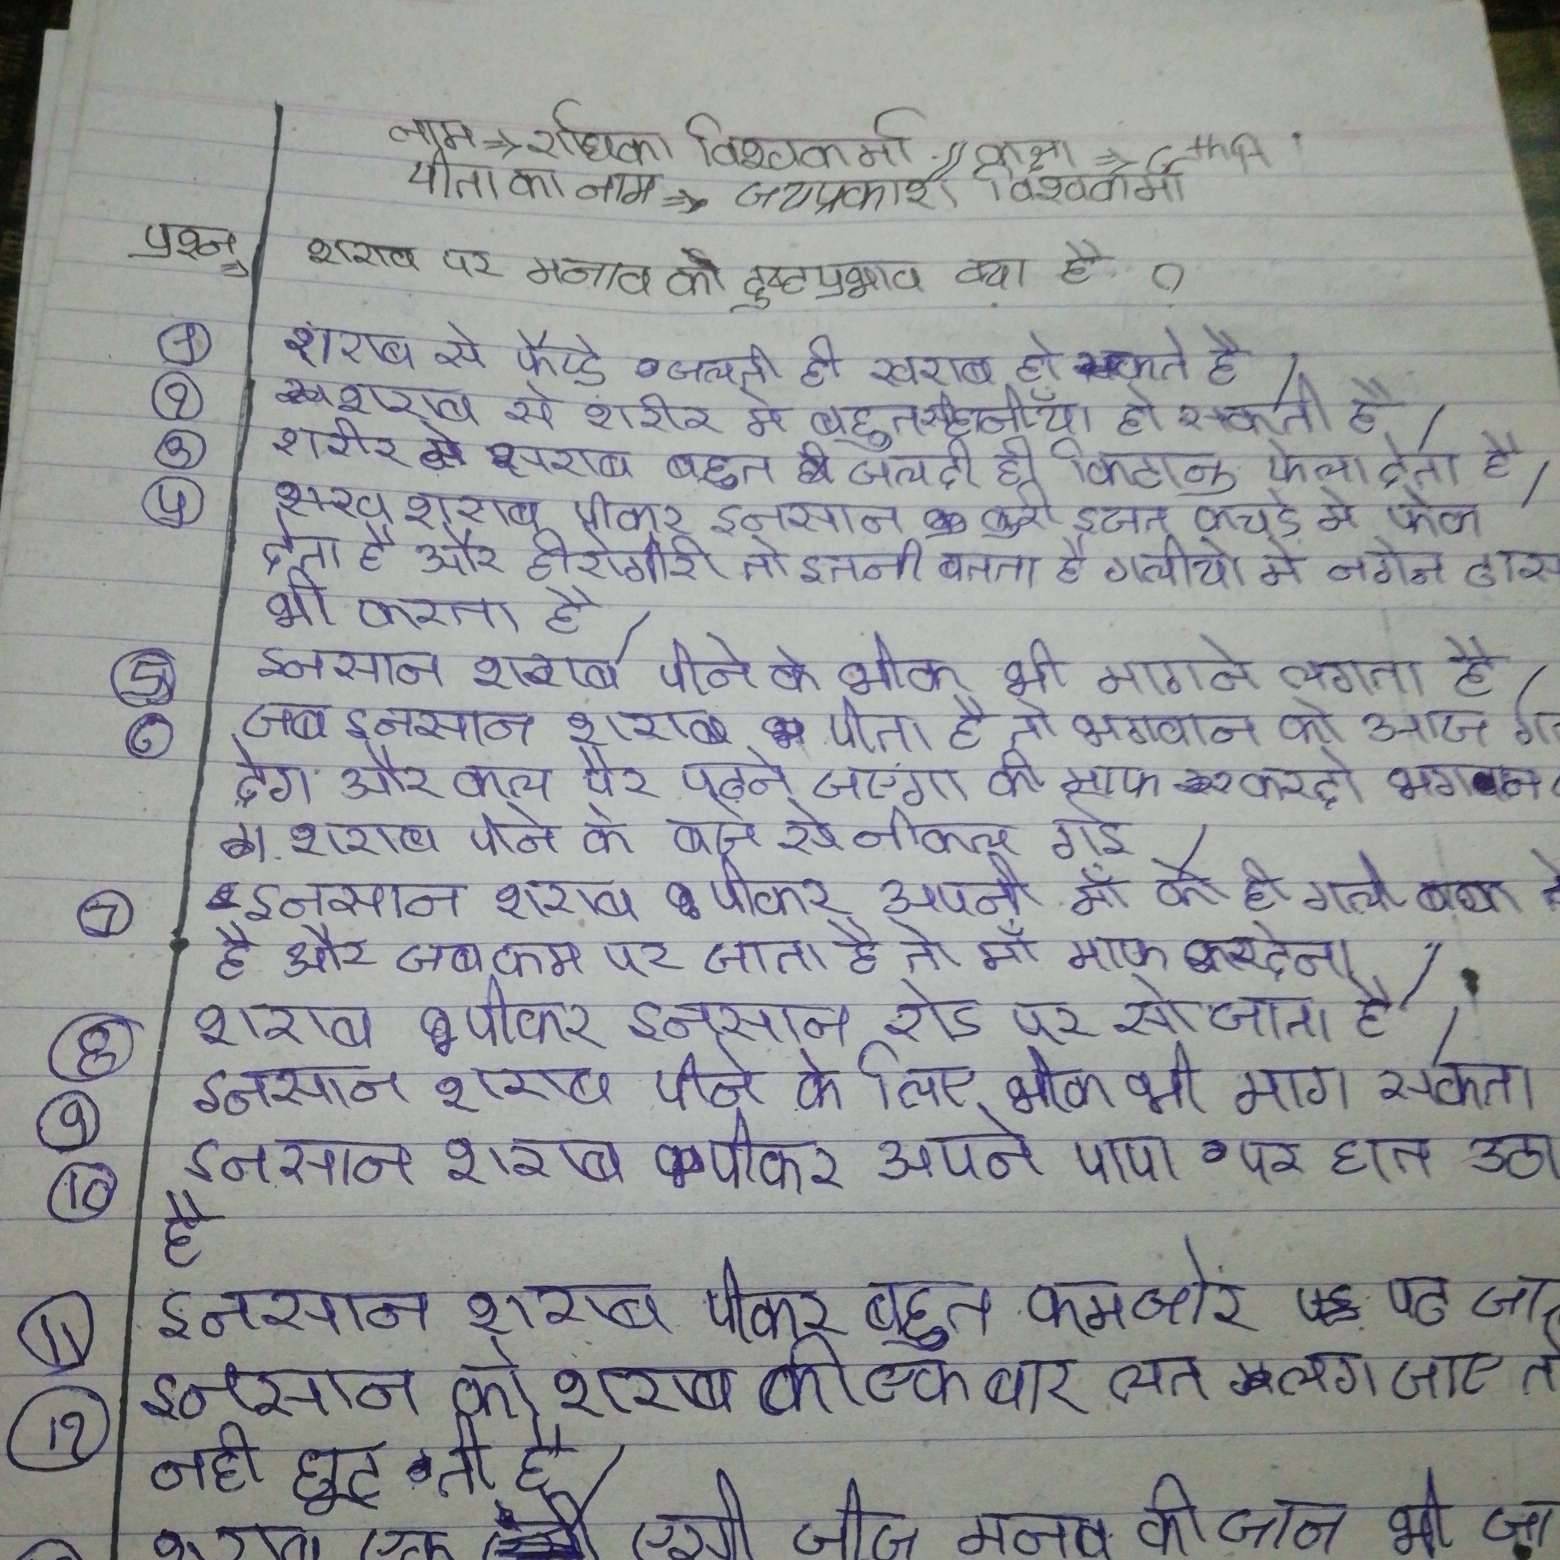 नाम ⇒ राधिका विश्वकर्मा // कक्षा ⇒
पीता का नाम ⇒ जयप्रकाश विश्वकर्मा
प्रश्न ⇒ शराब पर मनाव को दुष्टप्रभाव क्या है ?
① शंराब से फैप्डे जलती ही खराब हो सकते है /
② शराब से शंरीर मे बहुत सहानीयाँ हो सकती है /
③ शरीर मे सराब बहुत ही जलदी ही किटानु फेला देता है /
④ शराब पीकर इनसान इजत कचडे मे फेक
देता है और हीरोगीरी तो इतनी बनता है गलीयो मे नगेन ढास
भी करता है /
⑤ इनसान शराब पीने के भीक भी मागने लगता है /
⑥ जब इनसान शराब पीता है तो भगवान को आज
देग और कल पैर पढने जएंगा की माफ करदो भगवान
शराब पीने के बाने से नीकल गई /
⑦ इनसान शराब पीकर अपनी माँ को ही गली बका
है और जब कम पर जाता है तो माँ माफ करदेना /
⑧ शराब पीकर इनसान रोड पर सो जाता है /
⑨ इनसान शराब पीने के लिए भीक भी माग सकता
⑩ इनसान शराब पीकर अपने पापा पर हात उठा
है
⑪ इनसान शराब पीकर बहुत कमजोर पढ
⑫ इनसान को शराब की एक बार लत लग जाए
नही छुट ती है /
शराब एक एसी चीज मनव की जान भी जा